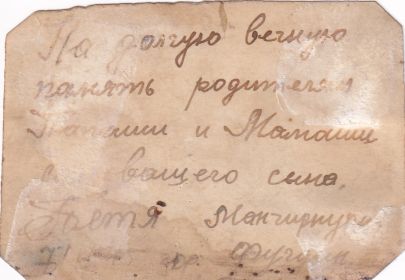 На долгую вечную
память родителям
Папаши и Мамаши
вашего сына.
Петя